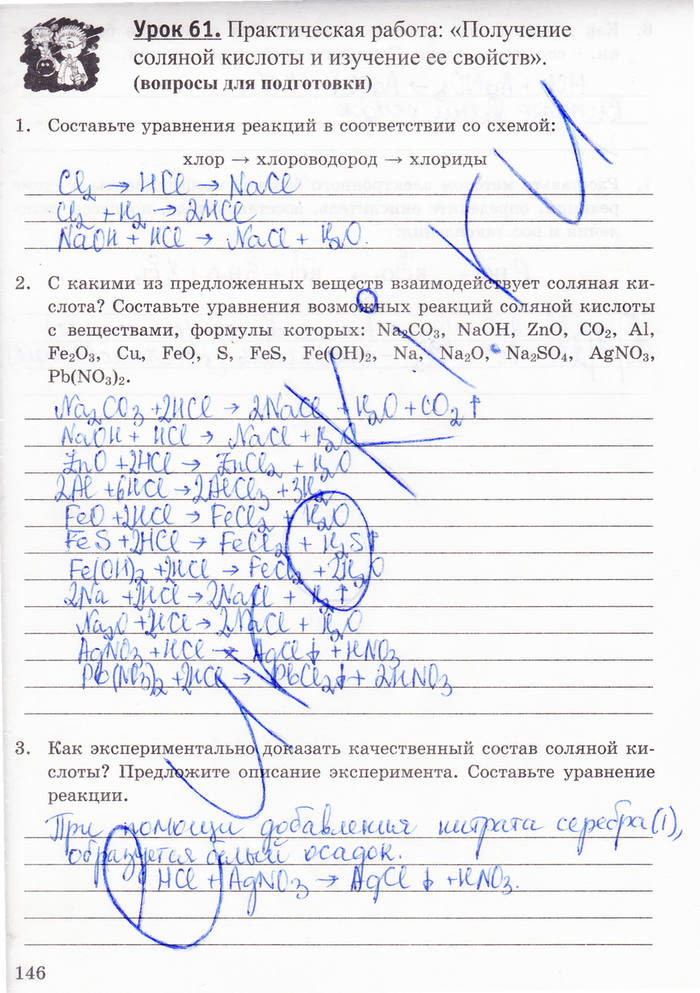 Урок 61. Практическая работа: «Получение
соляной кислоты и изучение ее свойств».
(вопросы для подготовки)
1. Составьте уравнения реакций в соответствии со схемой:
хлор → хлороводород → хлориды
Cl₂ → HCl → NaCl
Cl₂ + H₂ → 2HCl
NaOH + HCl → NaCl + H₂O.
2. С какими из предложенных веществ взаимодействует соляная ки-
слота? Составьте уравнения возможных реакций соляной кислоты
с веществами, формулы которых: Na₂CO₃, NaOH, ZnO, CO₂, Al,
Fe₂O₃, Cu, FeO, S, FeS, Fe(OH)₂, Na, Na₂O, Na₂SO₄, AgNO₃,
Pb(NO₃)₂.
Na₂CO₃ + 2HCl → 2NaCl + H₂O + CO₂↑
NaOH + HCl → NaCl + H₂O
ZnO + 2HCl → ZnCl₂ + H₂O
2Al + 6HCl → 2AlCl₃ + 3H₂
FeO + 2HCl → FeCl₂ + H₂O
FeS + 2HCl → FeCl₂ + H₂S↑
Fe(OH)₂ + 2HCl → FeCl₂ + 2H₂O
2Na + 2HCl → 2NaCl + H₂↑
Na₂O + 2HCl → 2NaCl + H₂O
AgNO₃ + HCl → AgCl↓ + HNO₃
Pb(NO₃)₂ + 2HCl → PbCl₂↓ + 2HNO₃
3. Как экспериментально доказать качественный состав соляной ки-
слоты? Предложите описание эксперимента. Составьте уравнение
реакции.
При помощи добавления нитрата серебра(I),
образуется белый осадок.
HCl + AgNO₃ → AgCl↓ + HNO₃.
146